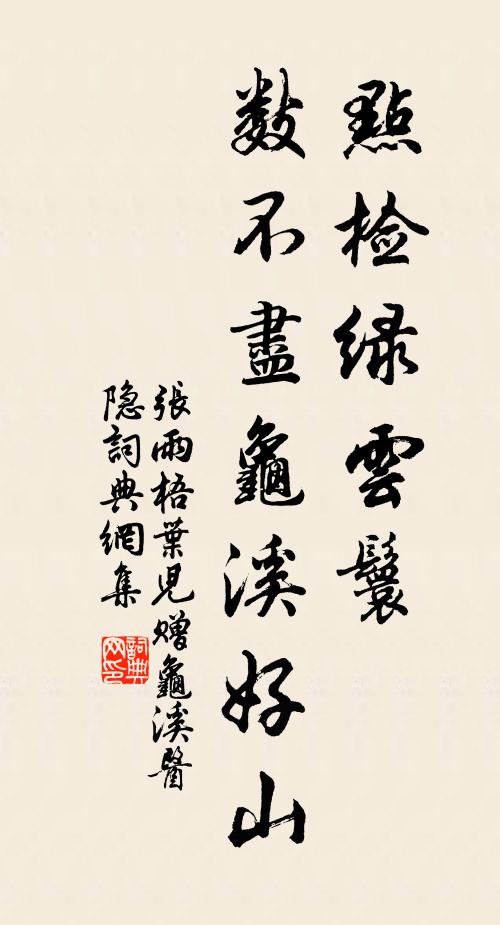 點檢綠雲鬟
數不盡龜溪好山
張雨梧葉兒贈龜溪醫
隐詞典網集
詞典
网印